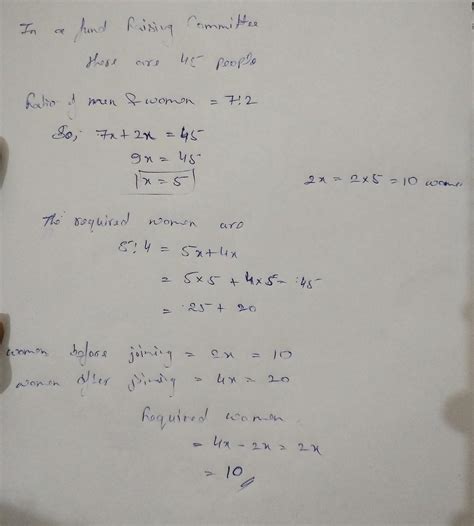 In a fund Raising Committee
there are 45 people
Ratio of men & women = 7:2
So, 7x + 2x = 45
9x = 45
x = 5
2x = 2x5 = 10 women
The required women are
5:4 = 5x + 4x
= 5x5 + 4x5 = 45
= 25 + 20
women before joining = 2x = 10
women after joining = 4x = 20
Required women
= 4x - 2x = 2x
= 10